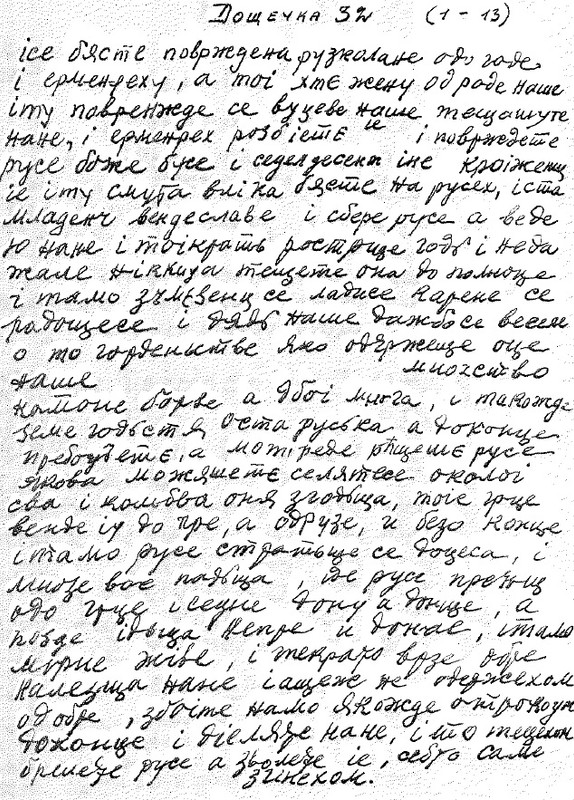 Дощечка 32 (1-13)
ісе бясте повржден рузколане одо годе
і ерменреху, а тоі хтє жену од роде наше
іту повренжде се вуцеве наше тещашуте
нане, і ерменрех розбіетє іе і поврждете
русе боже бусе і седемдесент іне кроіженц
іе іту смута вліка бясте на русех, іста
младенч вендеславе і сбере русе а веде
ю нане і тоікрать рострще годь і неба
жале нікища тещете она до полноце
і тамо се ладисе карене се
радощесе і дядь наше дажбо се веселе
о то горденьстве яко одержеще оце
наше множство
помоце борве а дбоі многа, і такожде
земе годьстя оста руська а до конце
пребоудетє, а може рщешє русе
якова можяшетє селятесе околоі
сва і кольва оня згодьща, тоіе грце
венде іу до пре, а одрузе, и безо конце
і тамо русе стратьще се доцеса, і
мнозе вое падьща, іде русе преженц
одо грце і седне дону а донце, а
позде ідьща непре и донае, і тамо
мірне живе, і текрато врзе обре
налезща нане і ащеж не одержехом
од обре, збоите намо якожде отроком
до конце і дієляце нане, і то тещехом
бренеце русе а зволеце іе, себто саме
згінехом.